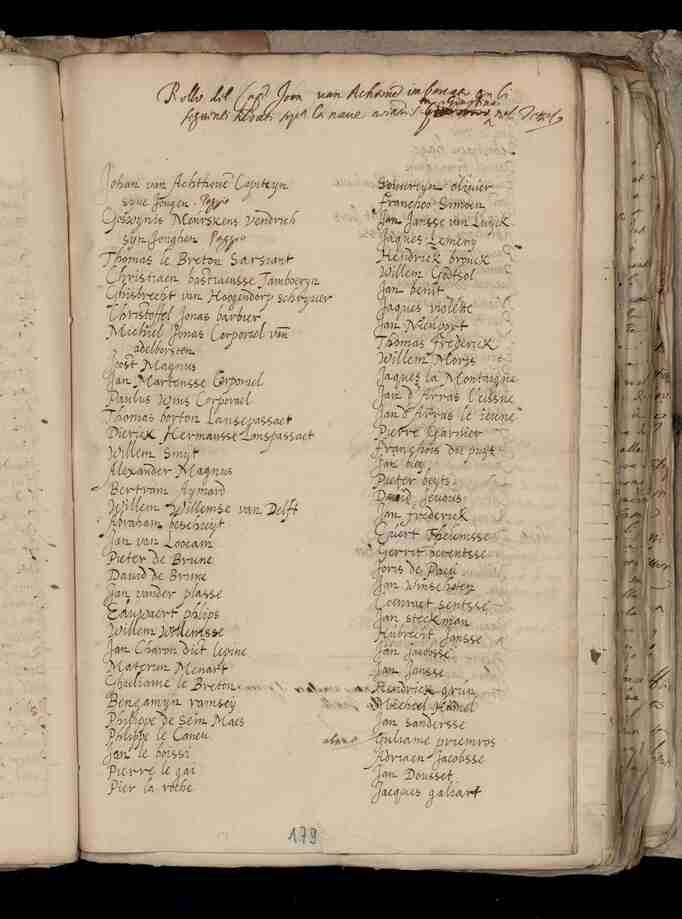 Rollo del Capo Joan van Achtoven imbarca con li
seguenti soldati sopra la nave
Johan van Achthoven Capiteyn
syne Jongen Paggio
Goswynis Meurskens vendrich
syn Jonghen Paggio
Thomas le Breton Sarsiant
Christiaen bastiaensse Tamboeryn
Ghisbrecht van Hoogendorp schryver
Christoffel Jonas barbier
Michiel Jonas Corporael van
adelborsten
Joost Magnus
Jan Martensse Corporael
Paulus Wins Corporael
Thomas borton Lansepassaet
Dierick Hermansse Lanspassaet
Willem Smyt
Alexander Magnus
Bertram Aymard
Willem Willemse van Delft
Abraham bescheyt
Jan van Loocam
Pieter de Brune
David de Brune
Jan vander plasse
Eduwaert philps
Willem Willemsse
Jan Charon dict lepine
Maturin Menart
Ghuiliame le Breton
Bengamyn ramsey
Philippe de Sein Maes
Philippe le Caneu
Jan le boissi
Pierre le gai
Pier la roche
Souvereyn olivier
Franchoo Simoen
Jan Jansse van Luyck
Jaques Lemeny
Hendrick brouck
Willem Godtsol
Jan benit
Jaques violette
Jan Nieuport
Thomas Frederick
Willem Morys
Jaques la Montaigne
Jan d'Arras l'eisne
Jan d'Arras le Jeune
Pierre Garnier
Franchois du puys
Jan bey
Pieter beyts
David Jevous
Jan frederick
Evert Thelemsse
Gerrit berentsse
Joris de Paeu
Jan Winschoten
Coenraet sentsse
Jan steckman
Hubrecht Jansse
Jan Jacobsse
Jan Jansse
Hendrick grun
Michiel
Jan sandersse
Guliame priemros
Adriaen Jacobsse
Jan Dousset
Jacques galiart
179